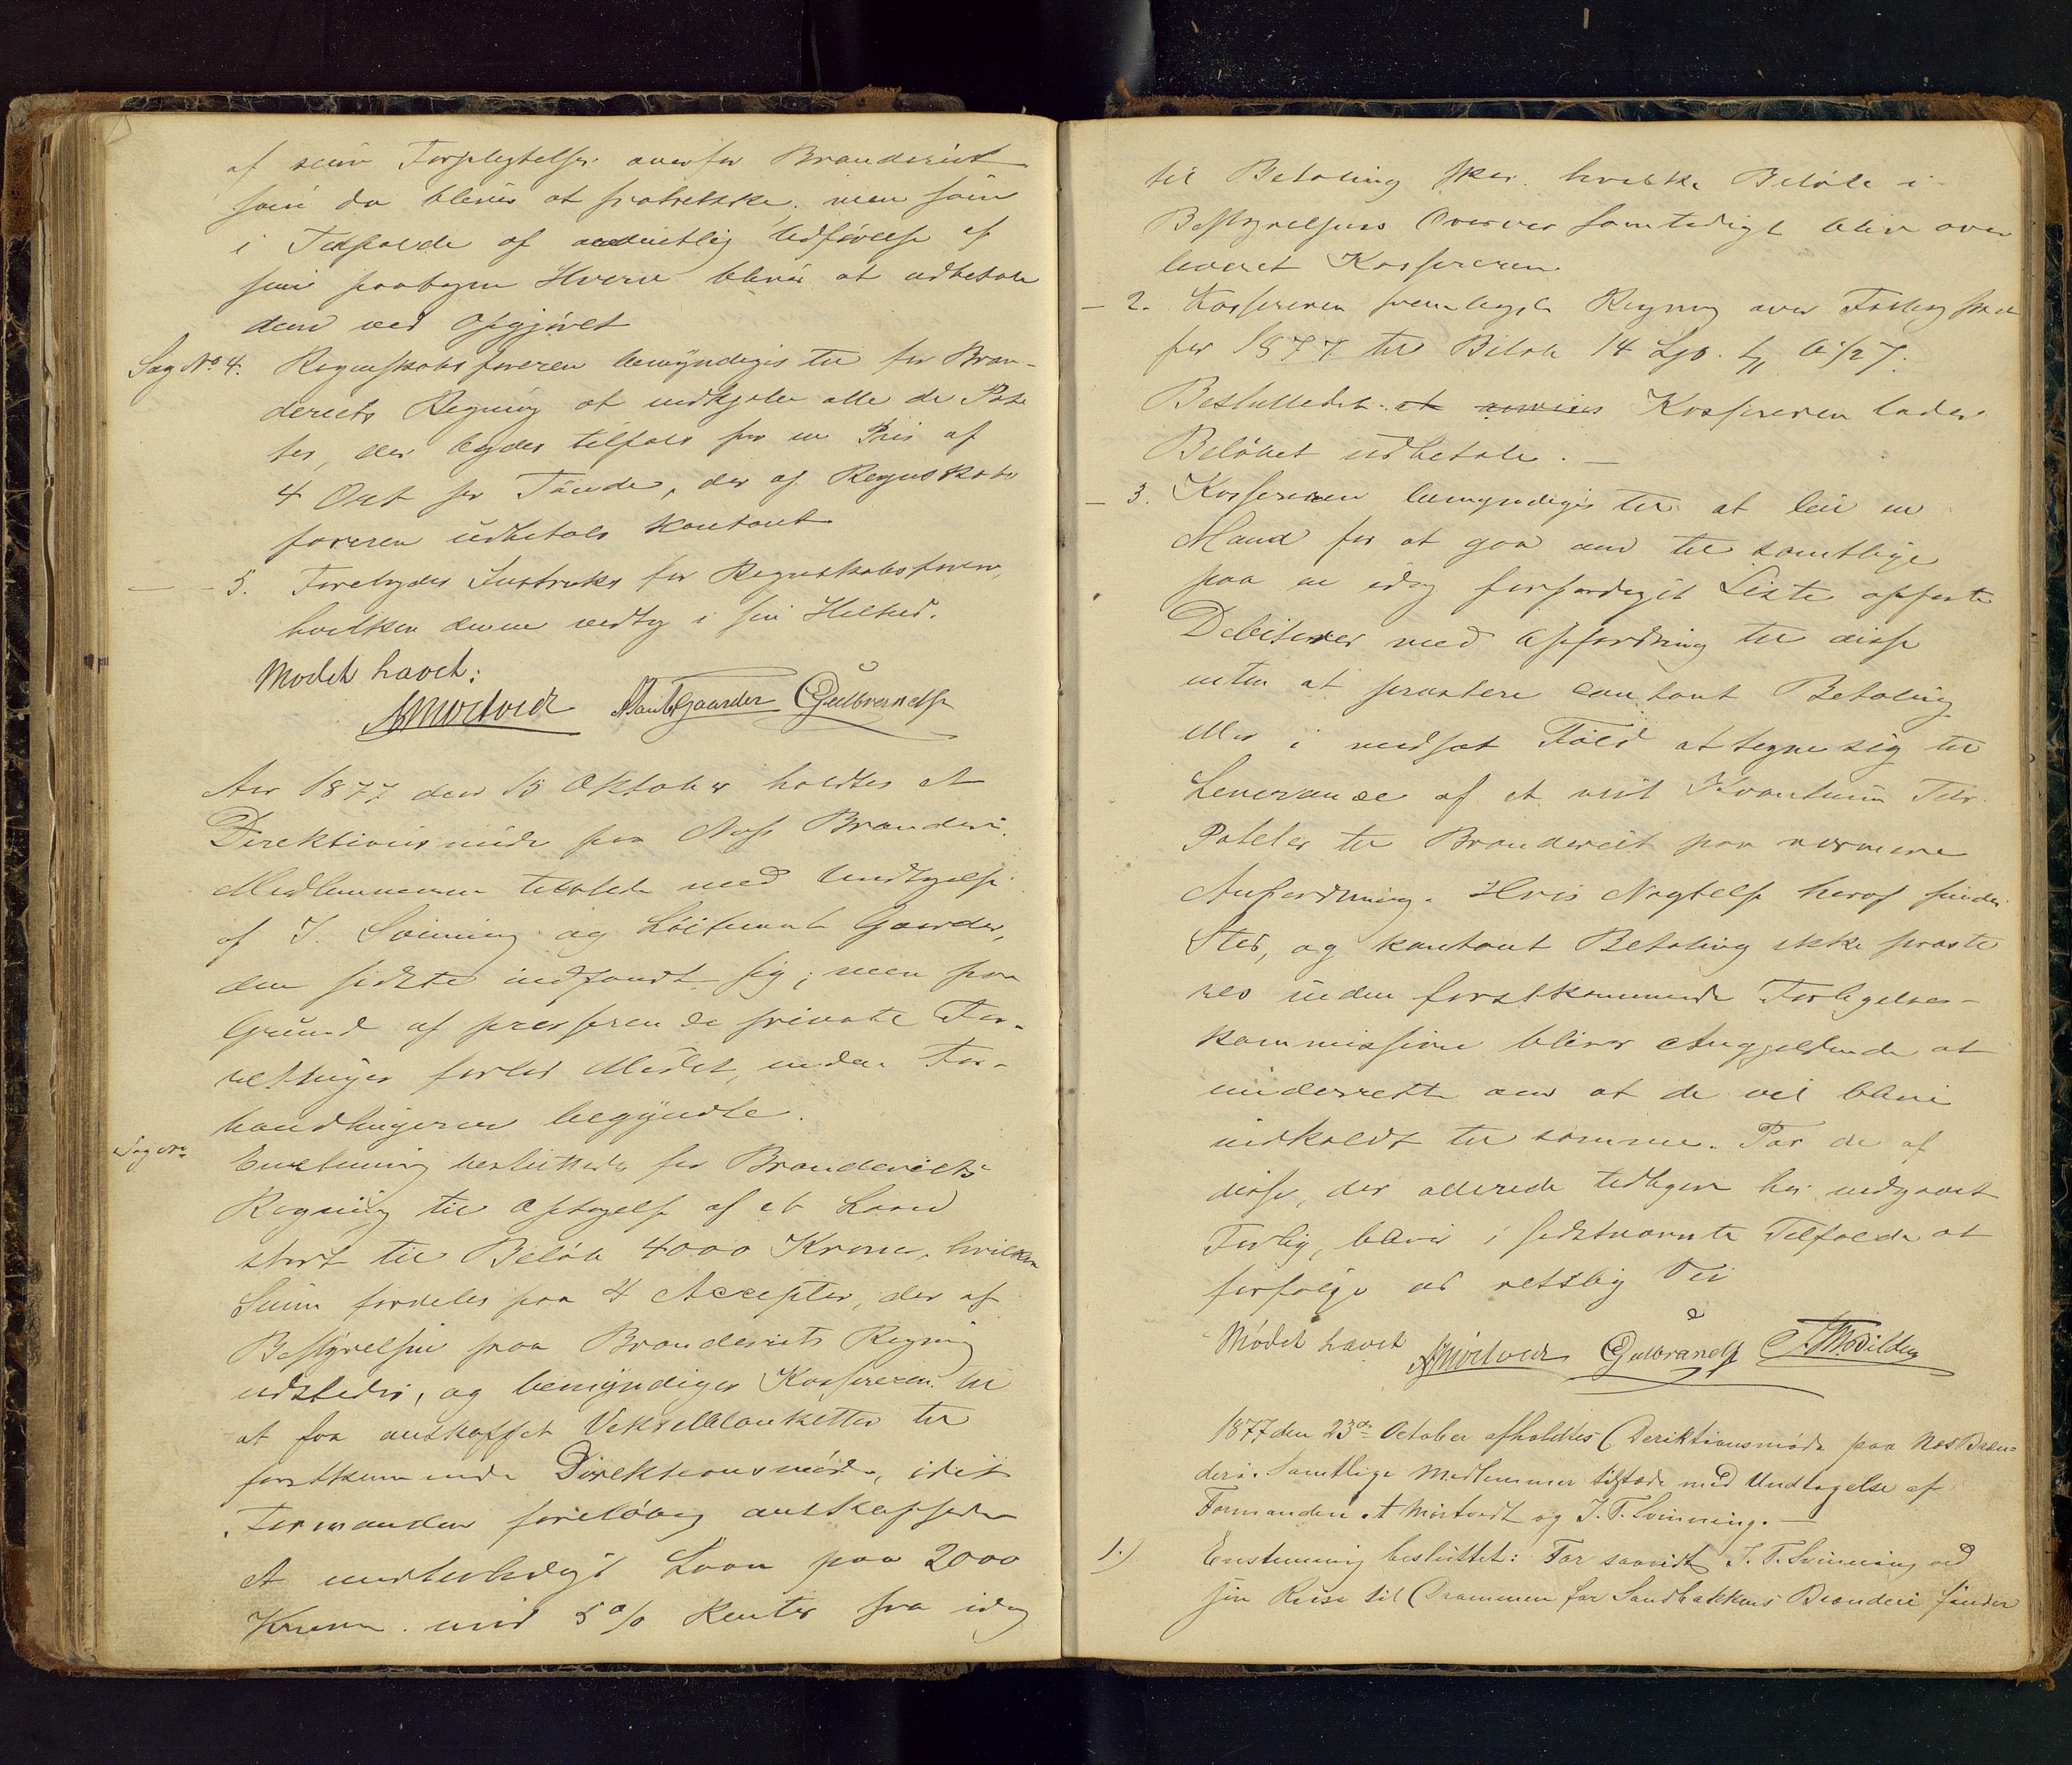 af sine Forpligtelser overfor Brænderiet
som da bliver at fratrække, men som
i Tilfælde af ordentlig Udførelse af
sine paatagne Hverv bliver at udbetale
dem ved Opgjøret
Sag No 4. Regnskabsføreren bemyndiges til for Bræn-
deriets Regning at indkjøbe alle de Pote
ter, der bydes tilfals for en Pris af
4 Ort pr Tønde, der af Regnskabs
føreren udbetales kontant
— - 5. Forelagdes Instruks for Regnskabsføreren,
hvilken denne vedtog i sin Helhed.
Mødet hævet:
AMørtvedt Gaarder Gulbrandsen
Aar 1877 den 15 Oktober holdtes et
Direktionsmøde paa Næs Brænderi.
Medlemmerne tilstede med Undtagelse
af J. Svinning og Løitnant Gaarder,
den sidste indfandt sig; men paa
Grund af presserende private For-
retninger forlod Mødet, inden For-
handlingerne begyndte.
Sag No Enstemmig besluttedes for Brænderiets
Regning til Optagelse af et Laan
stort til Beløb 4000 Kroner, hvilken
Sum fordeles paa 4 Accepter, der af
Bestyrelsen paa Brænderiets Regning
udstedes, og bemyndiges Kassereren til
at faa anskaffet Vekselblanketter til
førstkommende Direktionsmøde, idet
Formanden foreløbig anskaffede
et midlertidigt Laan paa 2000
Kroner mod 5 % Renter fra idag
til Betaling sker. hvilke Beløb i
Bestyrelsens Overvær samtidigt blev over
leveret Kassereren
- 2. Kassereren fremlagde Regning over
for 1877 til Beløb 14
Besluttedes: at Kassereren lader
Beløbet udbetale. —
- 3. Kassereren bemyndiges til at leie en
Mand for at gaa om til samtlige
paa en idag forfærdiget Liste opførte
Debitorer med Opfordring til disse
enten at præstere contant Betaling
eller i modsat Fald at tegne sig til
Leverance af et vist Kvantum Tdr.
Poteter til Brænderiet paa nærmere
Anfordring. Hvis Nægtelse heraf finder
Sted, og kontant Betaling ikke præste
res inden førstkommende Forligelses-
kommission bliver Angjeldende at
underrette om at de vil blive
indkaldt til samme. For de af
disse, der allerede tidligere har indgaaet
Forlig, bliver i sidstnævnte Tilfælde at
forfølge ad retslig Vei
Mødet hævet AMørtvedt Gulbrandsen
1877 den 23de October afholdtes Deriktionsmøde paa Næs Bræn=
deri. Samtlige Medlemmer tilstede med Undtagelse af
Formanden A Mørtvedt og J. T. Svinning. —
1.) Enstemmig besluttet: For saavidt J. T. Svinning ved
sin Reise til Drammen for Sandbakkens Brænderi finder